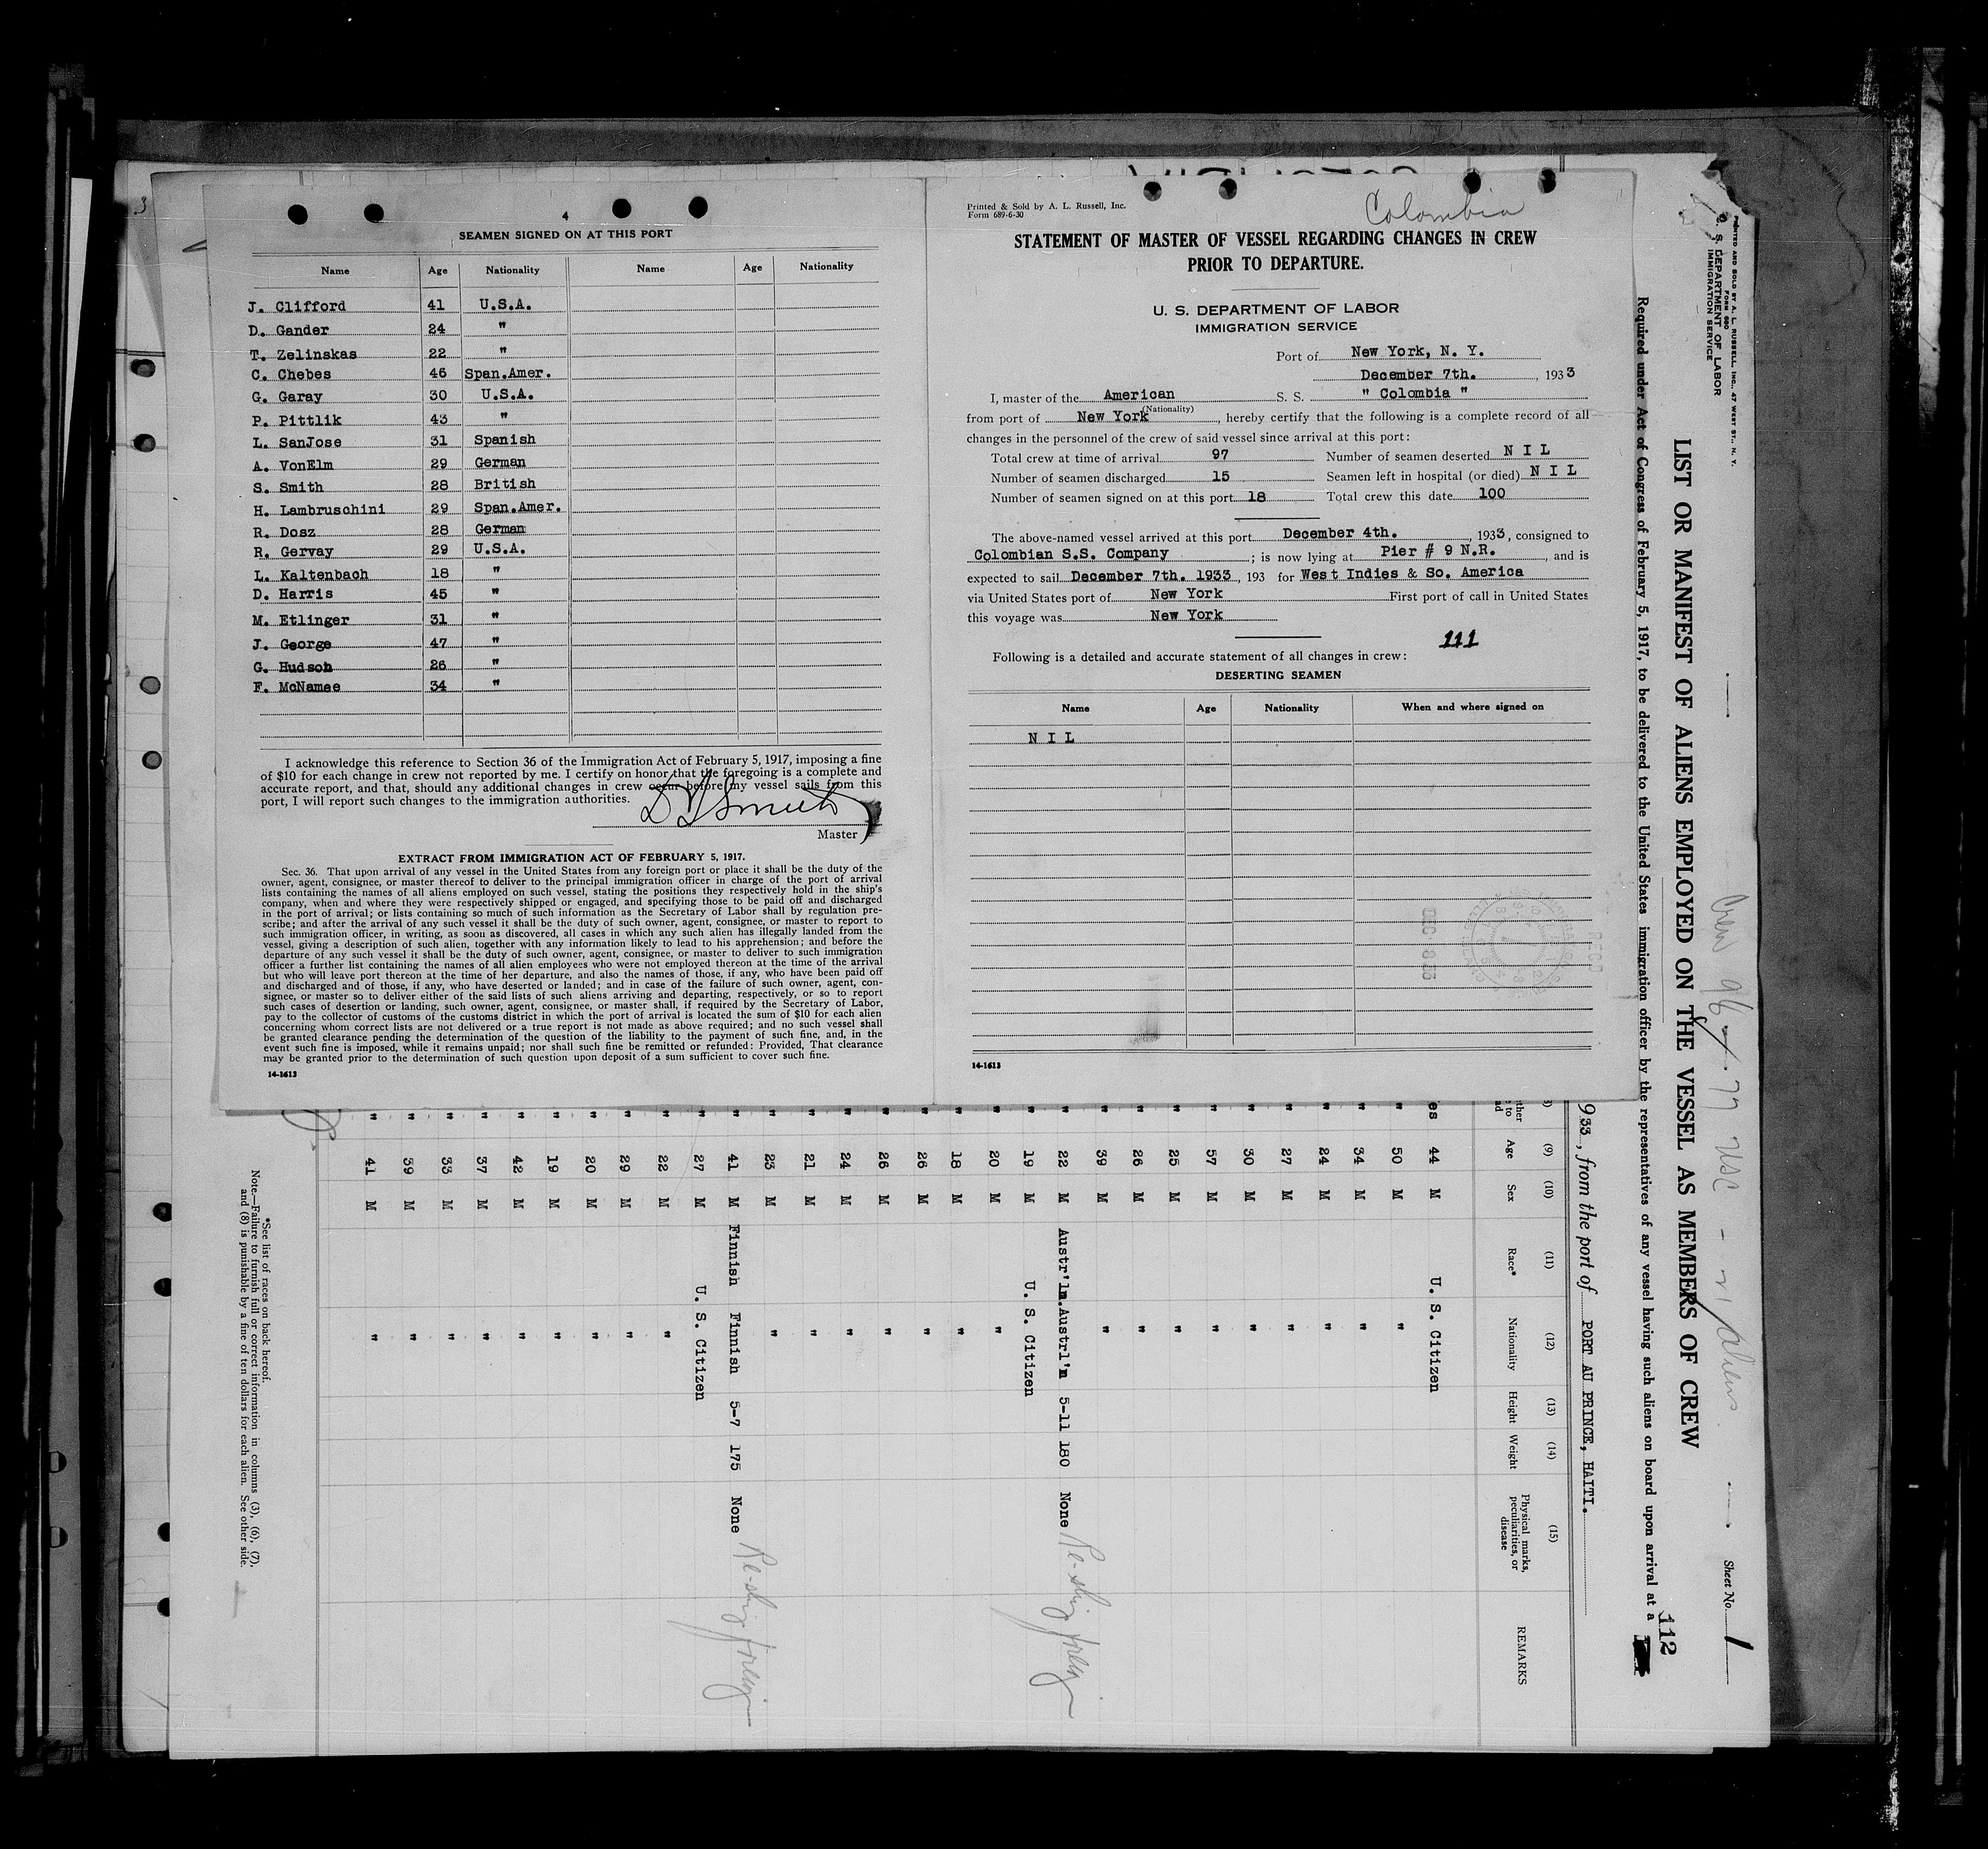 4
SEAMEN SIGNED ON AT THIS PORT
Name Age Nationality Name Age Nationality
J. Clifford 41 U.S.A.
D. Gander 24 "
T. Zelinskas 22 "
C. Chebes 46 Span.Amer.
G. Garay 30 U.S.A.
P. Pittlik 43 "
L. SanJose 31 Spanish
A. VonElm 29 German
S. Smith 28 British
H. Lambruschini 29 Span.Amer.
R. Dosz 28 German
R. Gervay 29 U.S.A.
L. Kaltenbach 18 "
D. Harris 45 "
M. Etlinger 31 "
J. George 47 "
G. Hudson 26 "
F. McNamee 34 "
I acknowledge this reference to Section 36 of the Immigration Act of February 5, 1917, imposing a fine
of $10 for each change in crew not reported by me. I certify on honor that the foregoing is a complete and
accurate report, and that, should any additional changes in crew occur before my vessel sails from this
port, I will report such changes to the immigration authorities.
Smith
Master
EXTRACT FROM IMMIGRATION ACT OF FEBRUARY 5, 1917.
Sec. 36. That upon arrival of any vessel in the United States from any foreign port or place it shall be the duty of the
owner, agent, consignee, or master thereof to deliver to the principal immigration officer in charge of the port of arrival
lists containing the names of all aliens employed on such vessel, stating the positions they respectively hold in the ship's
company, when and where they were respectively shipped or engaged, and specifying those to be paid off and discharged
in the port of arrival; or lists containing so much of such information as the Secretary of Labor shall by regulation pre-
scribe; and after the arrival of any such vessel it shall be the duty of such owner, agent, consignee, or master to report to
such immigration officer, in writing, as soon as discovered, all cases in which any such alien has illegally landed from the
vessel, giving a description of such alien, together with any information likely to lead to his apprehension; and before the
departure of any such vessel it shall be the duty of such owner, agent, consignee, or master to deliver to such immigration
officer a further list containing the names of all alien employees who were not employed thereon at the time of the arrival
but who will leave port thereon at the time of her departure, and also the names of those, if any, who have been paid off
and discharged and of those, if any, who have deserted or landed; and in case of the failure of such owner, agent, con-
signee, or master so to deliver either of the said lists of such aliens arriving and departing, respectively, or so to report
such cases of desertion or landing, such owner, agent, consignee, or master shall, if required by the Secretary of Labor,
pay to the collector of customs of the customs district in which the port of arrival is located the sum of $10 for each alien
concerning whom correct lists are not delivered or a true report is not made as above required; and no such vessel shall
be granted clearance pending the determination of the question of the liability to the payment of such fine, and, in the
event such fine is imposed, while it remains unpaid; nor shall such fine be remitted or refunded: Provided, That clearance
may be granted prior to the determination of such question upon deposit of a sum sufficient to cover such fine.
14-1613
Printed & Sold by A. L. Russell, Inc.
Form 689-6-30
Colombia
STATEMENT OF MASTER OF VESSEL REGARDING CHANGES IN CREW
PRIOR TO DEPARTURE.
U. S. DEPARTMENT OF LABOR
IMMIGRATION SERVICE
Port of New York, N. Y.
December 7th., 1933
I, master of the American S. S. " Colombia "
(Nationality)
from port of New York, hereby certify that the following is a complete record of all
changes in the personnel of the crew of said vessel since arrival at this port:
Total crew at time of arrival 97 Number of seamen deserted N I L
Number of seamen discharged 15 Seamen left in hospital (or died) N I L
Number of seamen signed on at this port 18 Total crew this date 100
The above-named vessel arrived at this port December 4th., 1933, consigned to
Colombian S.S. Company; is now lying at Pier # 9 N.R., and is
expected to sail December 7th. 1933, 193 for West Indies & So. America
via United States port of New York First port of call in United States
this voyage was New York
111
Following is a detailed and accurate statement of all changes in crew:
DESERTING SEAMEN
Name Age Nationality When and where signed on
N I L
14-1613
PRINTED AND SOLD BY A. L. RUSSELL, INC., 47 WEST ST., N. Y.
FORM 680
U. S. DEPARTMENT OF LABOR
IMMIGRATION SERVICE
Sheet No. 1
Crew 96 77 USC - 21 Aliens
LIST OR MANIFEST OF ALIENS EMPLOYED ON THE VESSEL AS MEMBERS OF CREW
112
Required under Act of Congress of February 5, 1917, to be delivered to the United States immigration officer by the representatives of any vessel having such aliens on board upon arrival at a
933, from the port of PORT AU PRINCE, HAITI.
(9) (10) (11) (12) (13) (14) (15)
Age Sex Race* Nationality Height Weight Physical marks, peculiarities, or disease REMARKS
es 44 M U. S. Citizen
" 50 M "
" 34 M "
" 24 M "
" 27 M "
" 30 M "
" 57 M "
" 25 M "
" 26 M "
" 39 M "
" 22 M Austr'ln. Austrl'n 5-11 180 None Re-ship foreign
" 19 M U. S. Citizen
" 20 M "
" 18 M "
" 26 M "
" 26 M "
" 24 M "
" 21 M "
" 23 M "
" 41 M Finnish Finnish 5-7 175 None Re-ship foreign
" 27 M U. S. Citizen
" 22 M "
" 29 M "
" 20 M "
" 19 M "
" 42 M "
" 37 M "
" 33 M "
" 39 M "
" 41 M "
*See list of races on back hereof.
Note.—Failure to furnish full or correct information in columns (3), (6), (7),
and (8) is punishable by a fine of ten dollars for each alien. See other side.